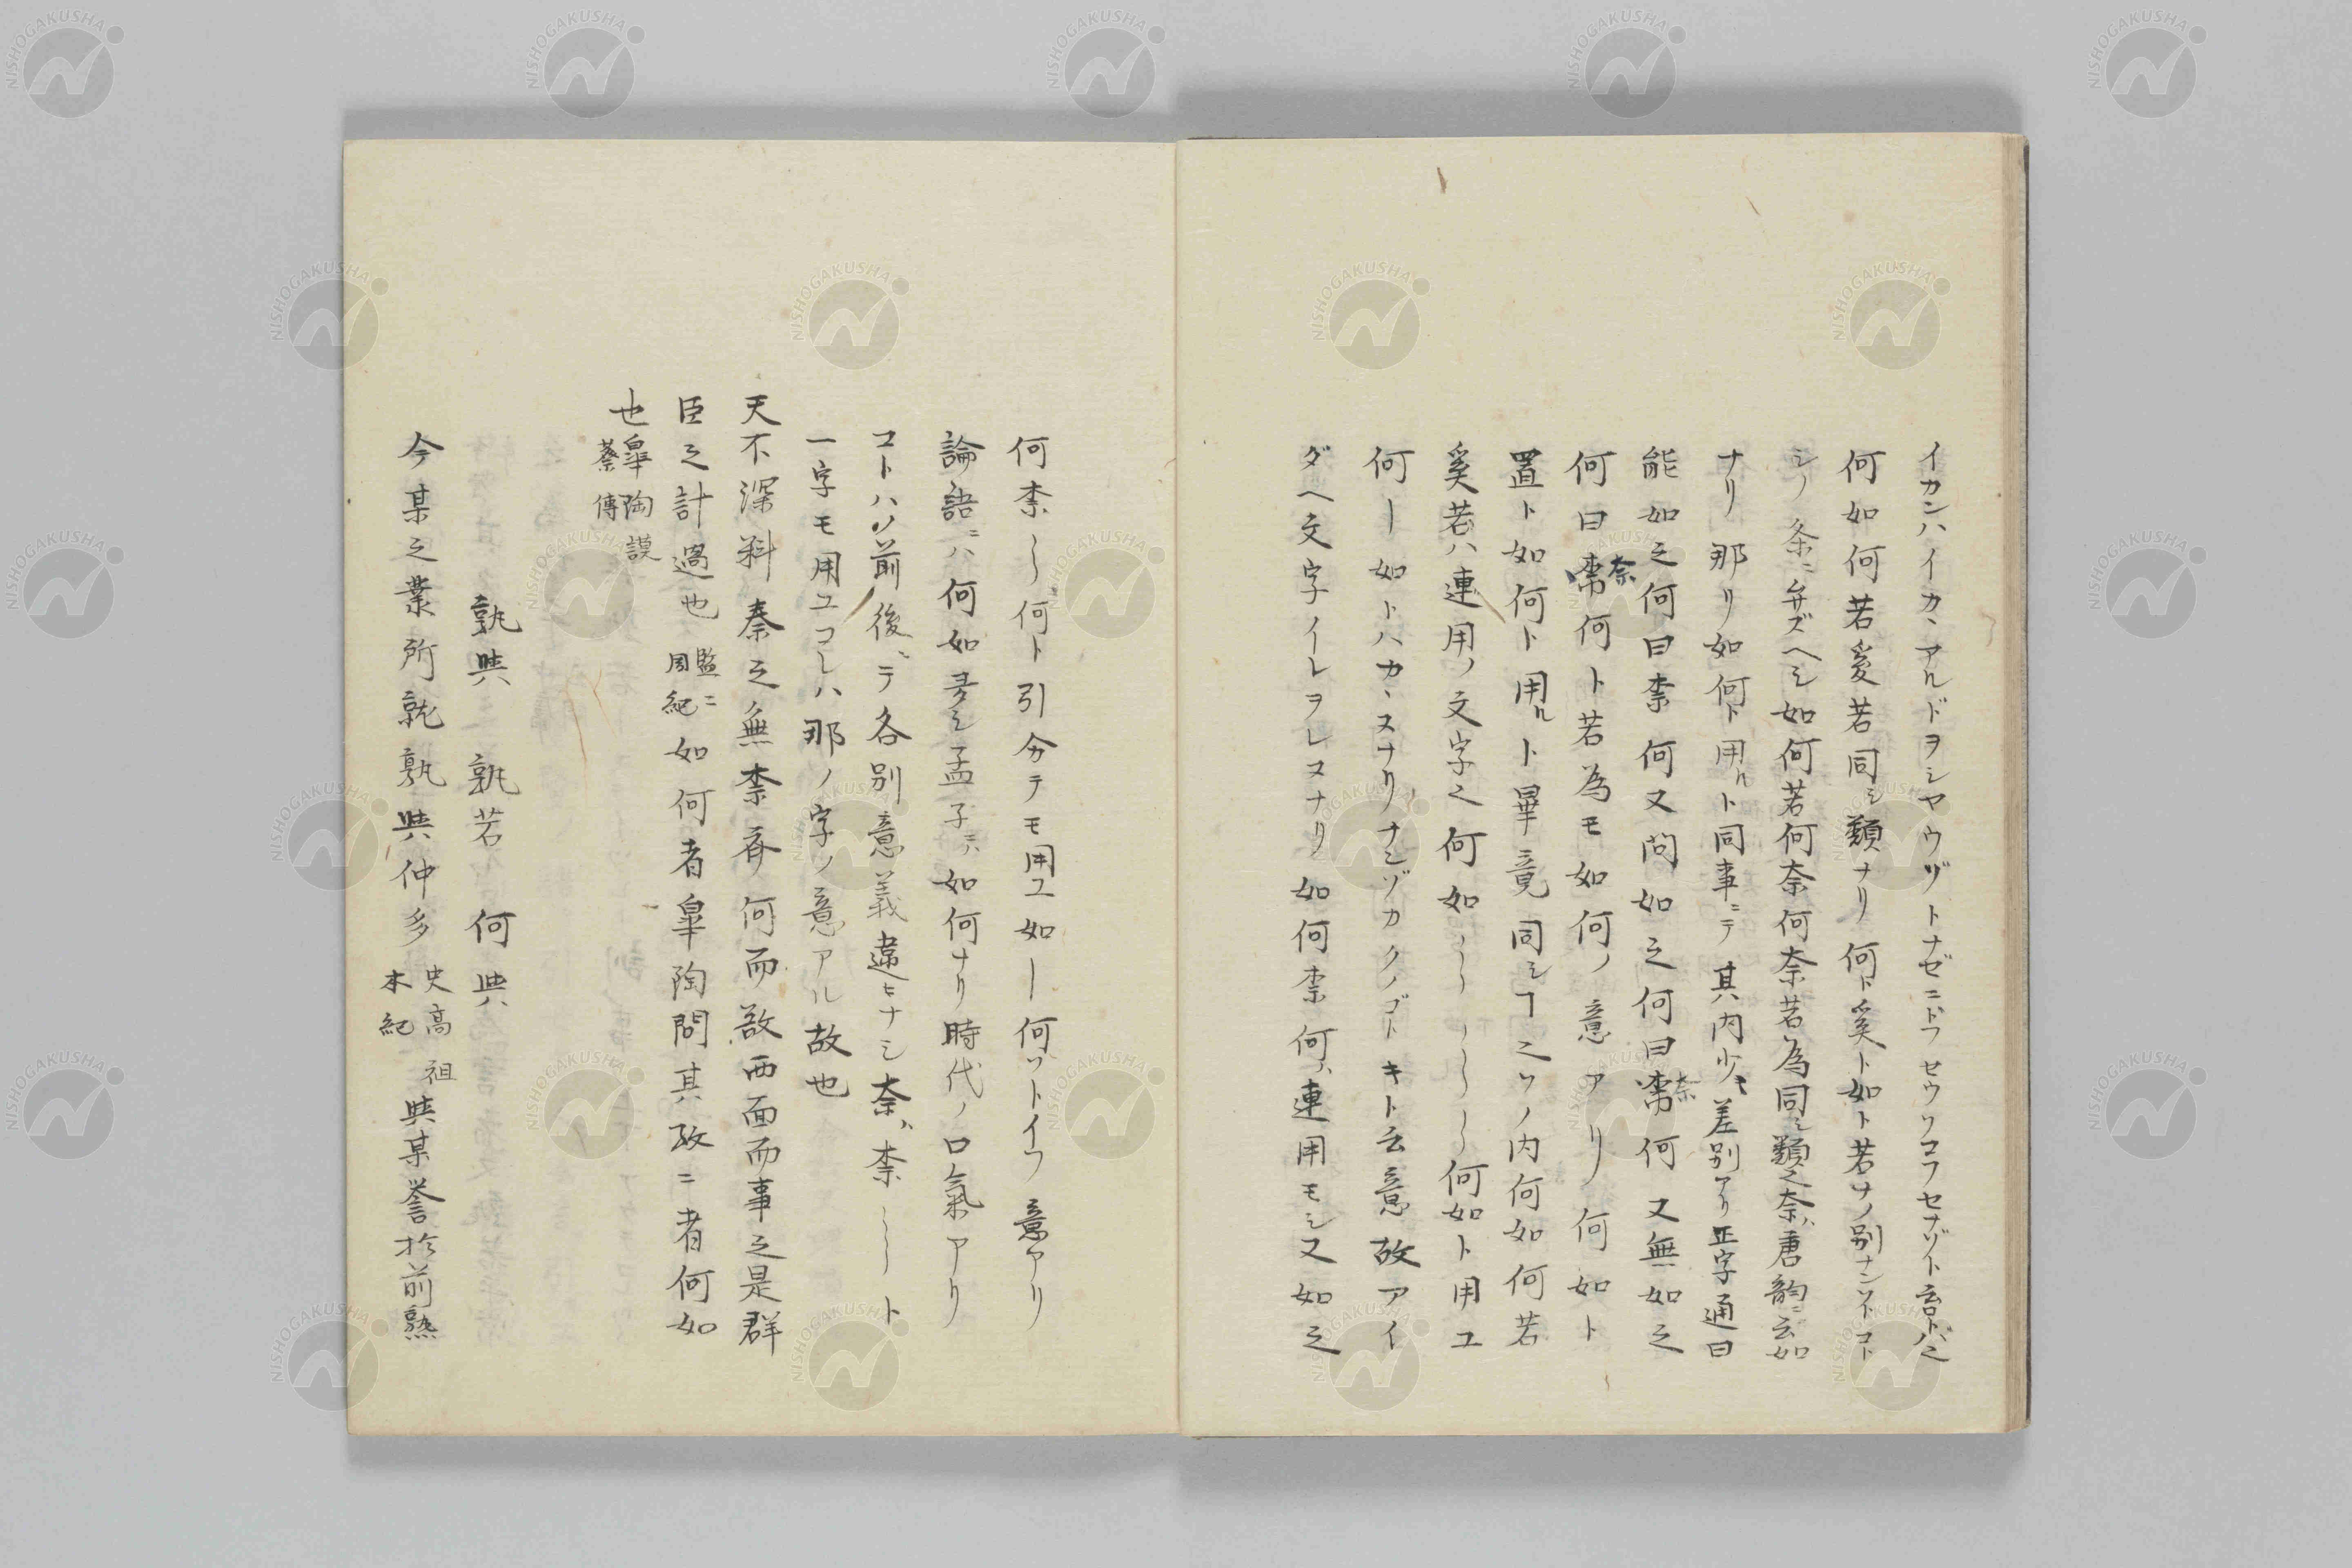 イカンハイカヽアルドヲシヤウゾトナゼニドフセウソコフセナゾト云コトバ之
何如何若奚若同シ類ナリ何ト奚ト如ト若ナノ別ナンソトコト
シノ条ニ弁ズヘシ如何若何奈何奈若為同シ類之奈ハ唐韵ニ云如
ナリ那リ如何ト用ルト同事ニテ其内少キ差別アリ正字通曰
能如之何曰柰何又問如之何曰奈何又無如之
何曰奈何ト若為モ如何ノ意アリ何如ト
置ト如何ト用ルト畢竟同シヿ之ソノ内何如何若
奚若ハ連用ノ文字之何如〳〵〳〵何如ト用ユ
何ー如トハカヽヌナリナンゾカクノゴトキト云意故アイ
ダヘ文字イレヲレヌナリ如何柰何ハ連用モシ又如之
何柰〳〵何ト引分テモ用ユ如ー何ソトイフ意アリ
論語ニハ何如多シ孟子ニハ如何ナリ時代ノ口氣アリ
コトハノ前後ニテ各別意義違ヒナシ奈ハ柰〳〵ト
一字モ用ユコレハ那ノ字ノ意アル故也
天不深料秦之無柰斉何而欲西面而事之是群
臣之計過也 監ニ 周紀ニ 如何者皐陶問其攷ニ者何如
也 皐陶謨 蔡傳
孰與 孰若 何與
今某之業所就孰與仲多 史高祖 本紀 與某誉於前熟